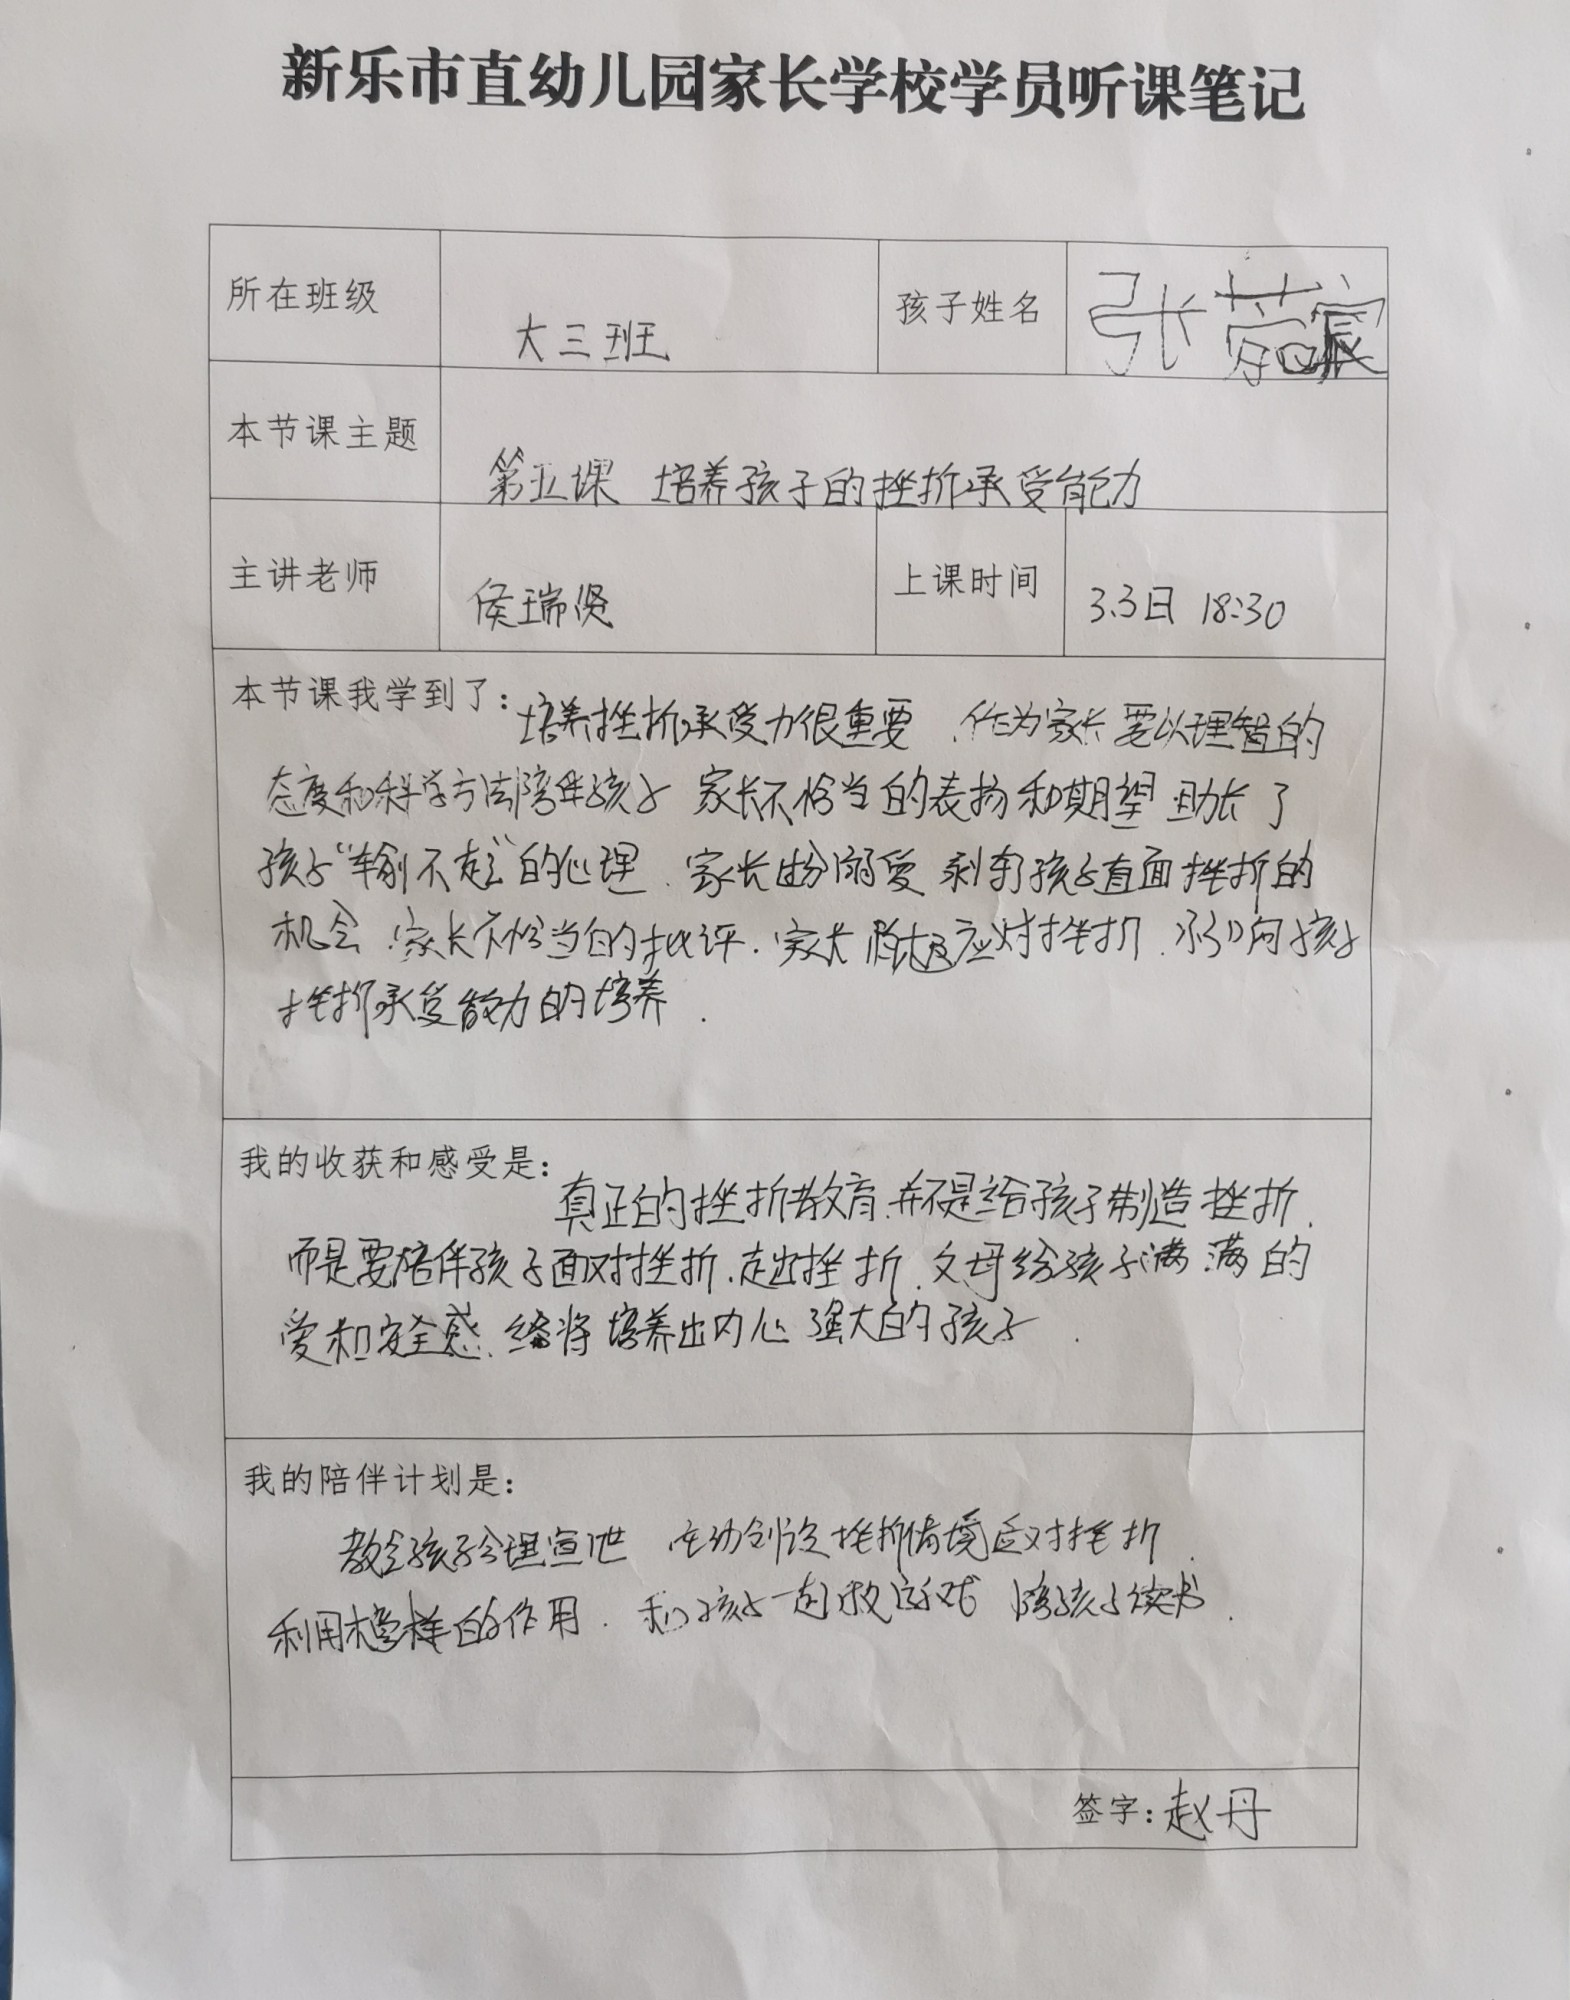 新乐市直幼儿园家长学校学员听课笔记
所在班级 大三班 孩子姓名 张
本节课主题 第五课 培养孩子的挫折承受能力
主讲老师 侯瑞贤 上课时间 3.3日 18:30
本节课我学到了：培养挫折承受力很重要．作为家长要以理智的
态度和科学方法陪伴孩子 家长不恰当的表扬和期望 助长了
孩子“输不起”的心理．家长 溺爱 剥夺孩子直面挫折的
机会．家长不恰当的批评．家长 应对挫折．影响孩子
挫折承受能力的培养．
我的收获和感受是：真正的挫折教育．并不是给孩子制造挫折．
而是要陪伴孩子面对挫折．走出挫折．父母给孩子满满的
爱和安全感．终将培养出内心强大的孩子．
我的陪伴计划是：
教会孩子合理宣泄 主动创设挫折情境应对挫折．
利用榜样的作用．和孩子一起做游戏 陪孩子读书．
签字：赵丹